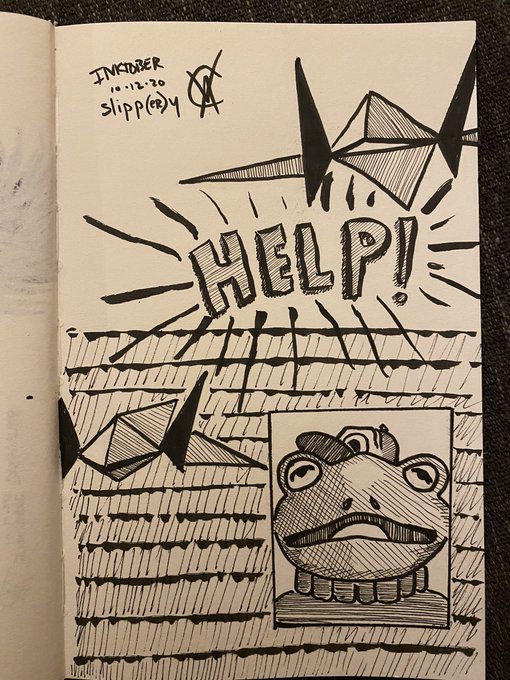 INKTOBER
10.12.20
slipp(ER)y
HELP!